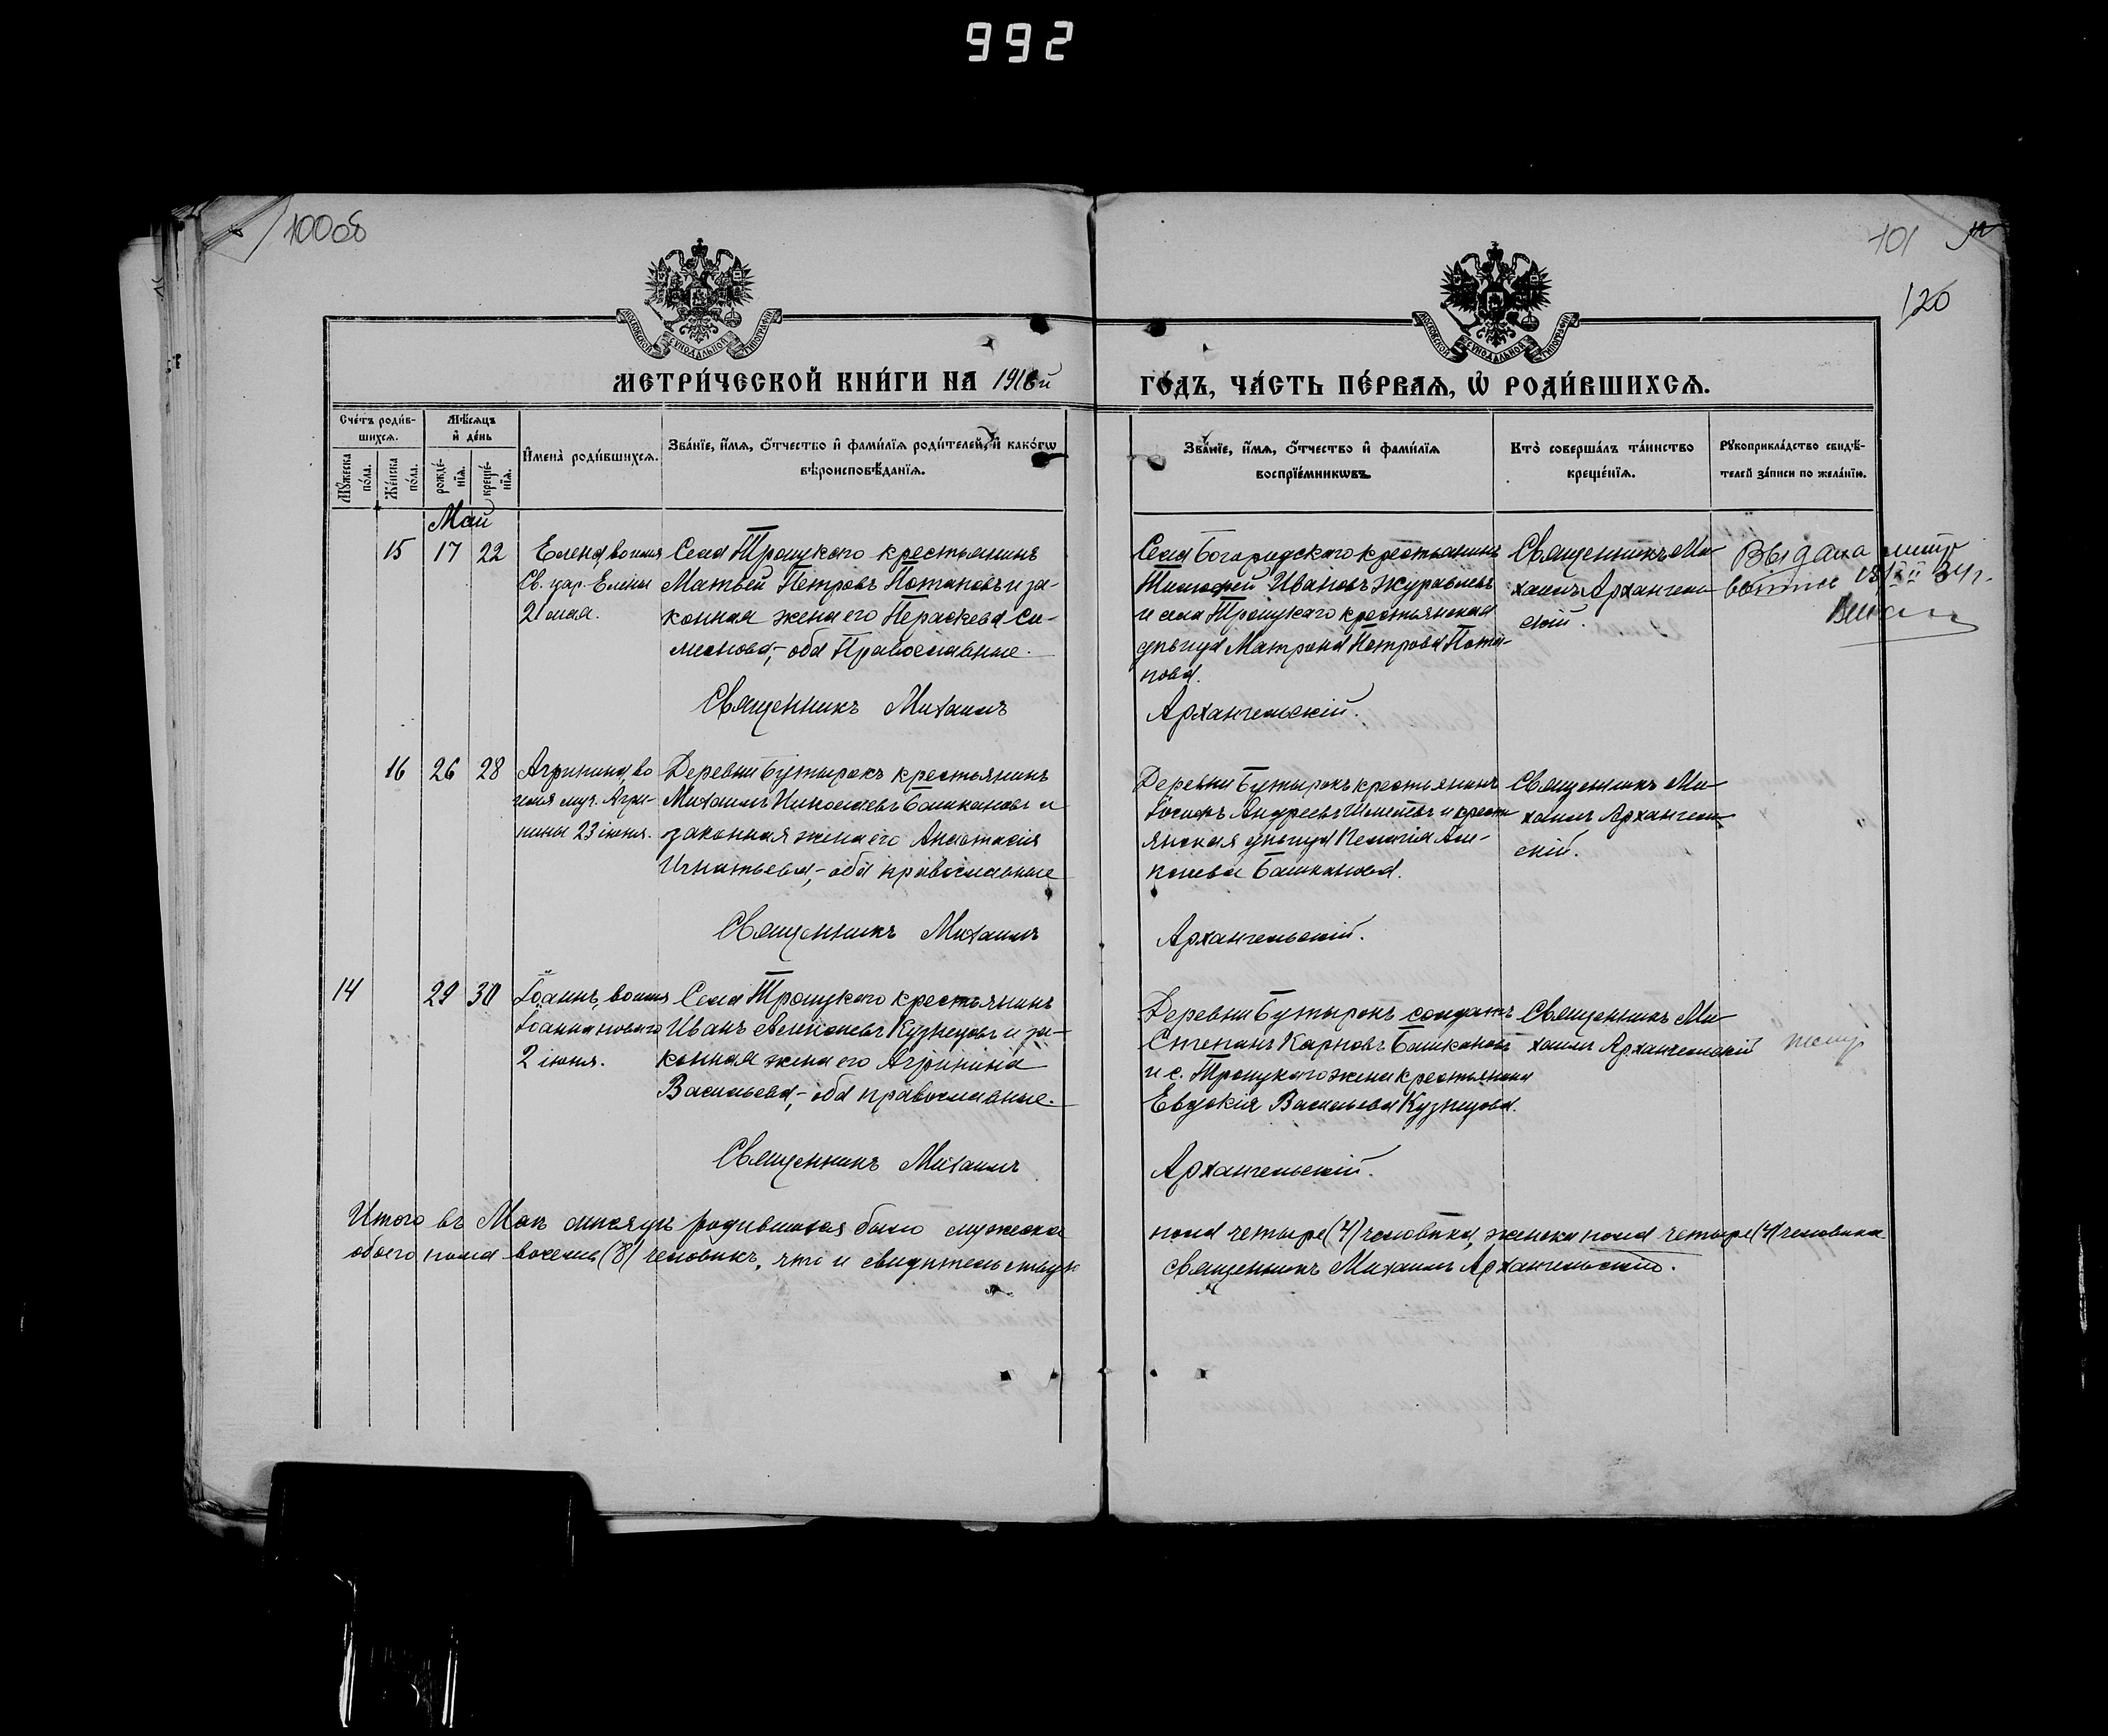 992
100об
101
120
МОСКОВСКОЙ СѴНОДАЛЬНОЙ ТИПОГРАФІИ
МОСКОВСКОЙ СѴНОДАЛЬНОЙ ТИПОГРАФІИ
МЕТРИ́ЧЕСКОЙ КНИ́ГИ НА 1916й
ГО́ДЪ, ЧА́СТЬ ПЕ́РВАѦ, Ѡ҆ РОДИ́ВШИХСѦ.
Сче́тъ роди́в-
шихсѧ.
Мꙋ́жеска по́ла.
Же́нска по́ла.
Мѣ́сѧцъ
и҆ де́нь
рожде́-
нїѧ.
креще́-
нїѧ.
И҆мена̀ роди́вшихсѧ.
Зва́нїе, и҆́мѧ, ѻ҆́тчество и҆ фами́лїѧ роди́телей, и҆ како́гѡ
вѣроисповѣ́данїѧ.
Зва́нїе, и҆́мѧ, ѻ҆́тчество и҆ фами́лїѧ
воспрїе́мникѡвъ.
Кто̀ соверша́лъ та́инство
креще́нїѧ.
Рꙋкоприкла́дство свидѣ́-
телей за́писи по жела́нїю.
Май
15 17 22
Елена, во имя
Св. цар. Елены
21 мая.
Села Троицкаго крестьянинъ
Матвей Петровъ Потаповъ и за-
конная жена его Параскева Си-
меонова, – оба Православные.
Села Богородскаго крестьянинъ
Тимофей Ивановъ Журавлевъ
и села Троицкаго крестьянская
девица Матрона Петрова Пота-
пова.
Священникъ Ми-
хаилъ Архангель-
скій.
Выдана метр
34 г.
Священникъ Михаилъ
Архангельскій.
16 26 28
Агрипина, во
имя муч. Агри-
пины 23 іюня.
Деревни Бутырокъ крестьянинъ
Михаилъ Николаевъ Башкановъ и
законная жена его Анастасія
Игнатьева, – оба православные
Деревни Бутырокъ крестьянинъ
Іосифъ Андреевъ и кресть
янская девица Пелагія Али-
пиева Башканова.
Священникъ Ми-
хаилъ Архангель-
скій.
Священникъ Михаилъ
Архангельскій.
14 29 30
Іоаннъ, во имя
Іоанна новаго
2 іюня.
Села Троицкаго крестьянинъ
Иванъ Алексеевъ Кузнецовъ и за-
конная жена его Агрипина
Васильева, – оба православные.
Деревни Бутырокъ солдатъ
Степанъ Карповъ Башкановъ
и с. Троицкаго жена крестьянина
Евдокія Васильева Кузнецова.
Священникъ Ми-
хаилъ Архангельскій
Священникъ Михаилъ
Архангельскій.
Итого въ Маѣ месяце родившихся было мужеска
пола четыре (4) человѣка, женска пола четыре (4) человека
обоего пола восемь (8) человекъ, что и свидетельствую
священникъ Михаилъ Архангельскій.